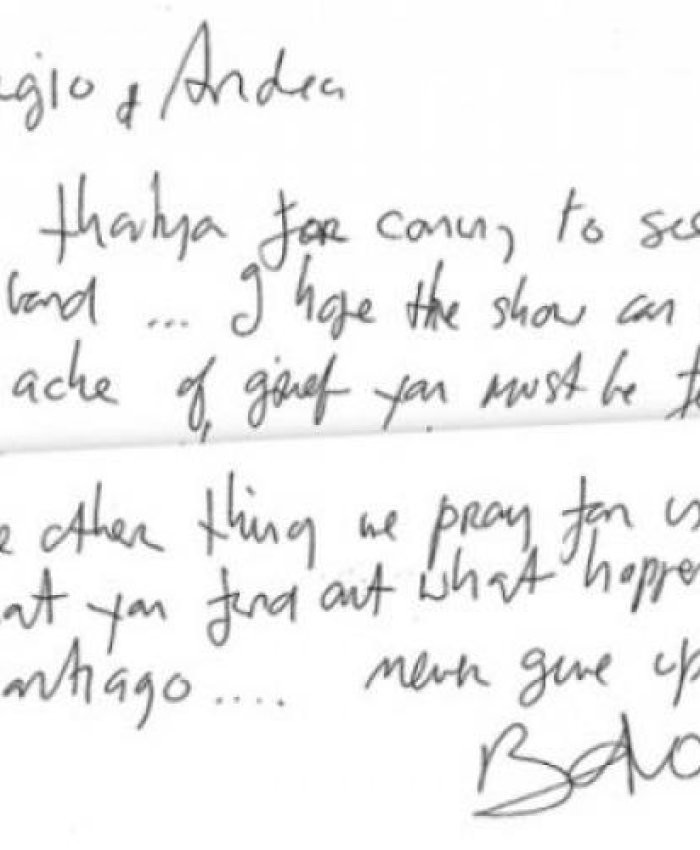 gio & Andrea
thankya for coming to see
band ... I hope the show can
ache of grief you must be
other thing we pray for
at you find out what happe
antiago .... never give up